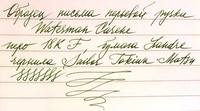 Образец письма перьевой ручки
Waterman Carene
перо 18K F бумага Lundre
чернила Sailor Tokiwa Matsu